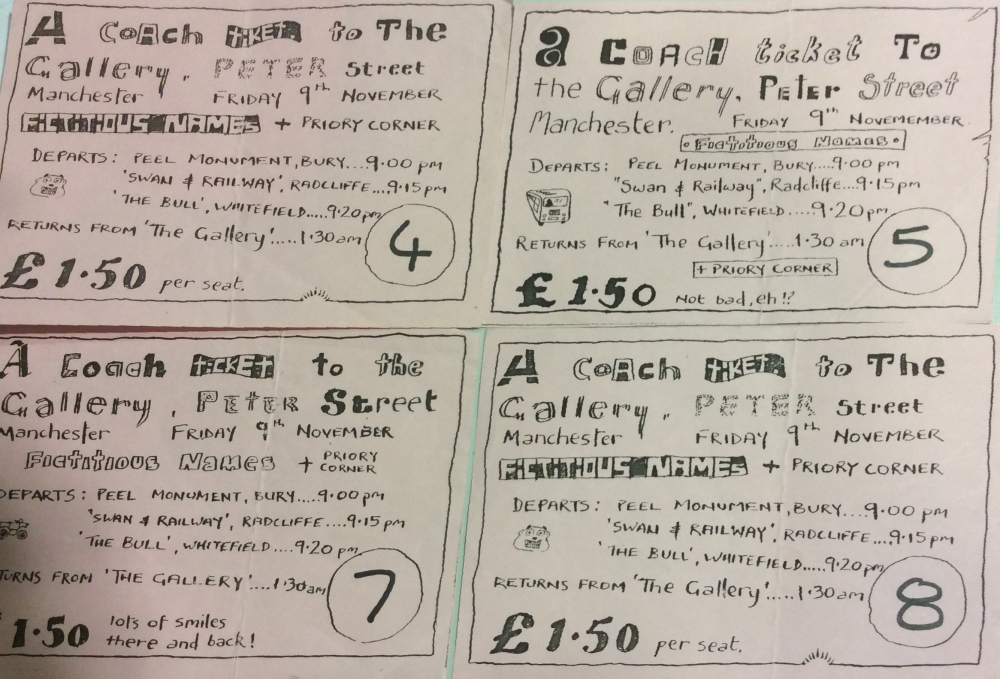 A Coach ticket to The
Gallery, PETER Street
Manchester FRIDAY 9th NOVEMBER
FICTITIOUS NAMES + PRIORY CORNER
DEPARTS: PEEL MONUMENT, BURY...9.00 pm
'SWAN & RAILWAY', RADCLIFFE...9.15pm
'THE BULL', WHITEFIELD.....9.20pm
RETURNS FROM 'The Gallery'.....1.30am
4
£1.50 per seat.
a COACH ticket To
the Gallery, Peter Street
Manchester. FRIDAY 9th NOVEMEMBER.
• Fictitious Names •
DEPARTS: PEEL MONUMENT, BURY....9.00 pm
"Swan & Railway", Radcliffe...9.15pm
"The Bull", WHITEFIELD.....9.20pm
RETURNS FROM 'The Gallery'.....1.30 am
5
+ PRIORY CORNER
£1.50 Not bad, eh!?
A Coach TICKET to the
Gallery, PETER Street
Manchester FRIDAY 9th NOVEMBER
Fictitious Names + PRIORY CORNER
DEPARTS: PEEL MONUMENT, BURY....9.00 pm
'SWAN & RAILWAY', RADCLIFFE....9.15 pm
'THE BULL', WHITEFIELD....9.20 pm
TURNS FROM 'THE GALLERY'....1.30am
7
1.50 lots of smiles
there and back!
A Coach ticket to The
Gallery, PETER Street
Manchester FRIDAY 9th NOVEMBER
FICTITIOUS NAMES + PRIORY CORNER
DEPARTS: PEEL MONUMENT, BURY...9.00 pm
'SWAN & RAILWAY', RADCLIFFE...9.15pm
'THE BULL', WHITEFIELD.....9.20pm
RETURNS FROM 'The Gallery'.....1.30am
8
£1.50 per seat.